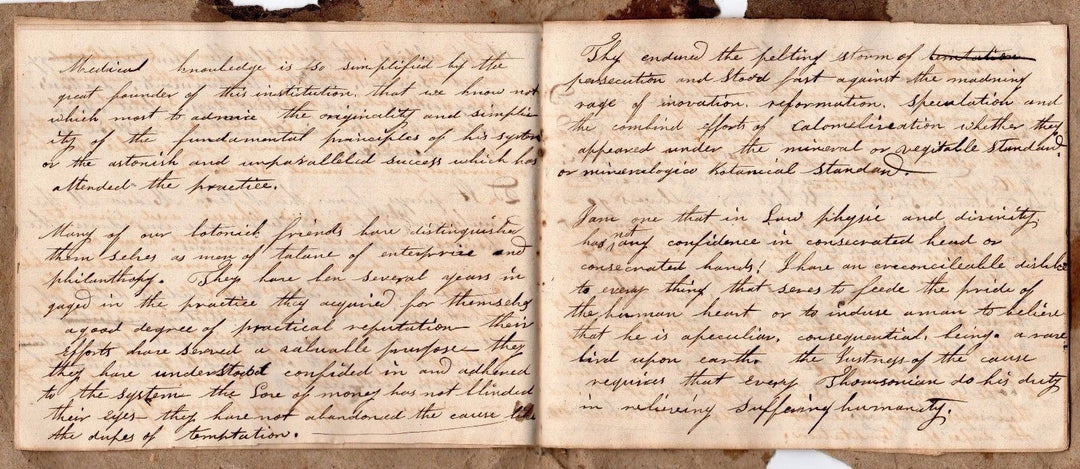 Medical knowledge is so simplified by the
great founder of this institution. that we know not
which most to admire the originality and simplic
ity of the fundamental principles of his system
or the astonish and unparalleled success which has
attended the practice.
Many of our botonick friends have distinguished
them selves as men of talane of enterprise and
philanthropy. They have ben several years in
gaged in the practice they acquired for themselvs
a good degree of practical reputation their
efforts have served a valuable purpose they
they have understood confided in and adhered
to the system the Love of money has not blinded
their eyes they have not abandoned the cause
the dupes of temptation.
They endured the pelting storm of
persecution and stood fast against the madning
rage of inovation. reformation. speculation and
the combind efforts of Calomelisation whether they
appeared under the mineral or vegitable standard.
or mineralogico Botanical standard.
I am one that in Law physic and divinity
has not any confidence in consecrated head or
consecrated hands! I have an ereconcileable dislike
to every thing that serves to feede the pride of
the human heart or to induse a man to believe
that he is a peculiar, consequential, being. a rare
bird upon earth. the Justness of the cause
requires that every Thomsonian do his duty
in relieveing suffering humanity.